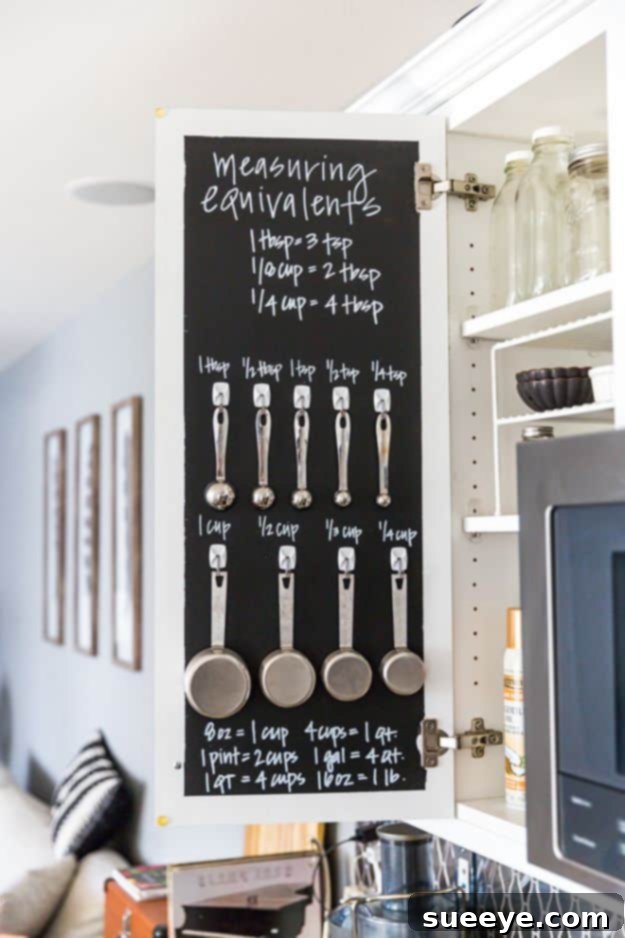 measuring
equivalents
1 tbsp = 3 tsp
1/8 cup = 2 tbsp
1/4 cup = 4 tbsp
1 tbsp 1/2 tbsp 1 tsp 1/2 tsp 1/4 tsp
1 cup 1/2 cup 1/3 cup 1/4 cup
8 oz = 1 cup 4 cups = 1 qt.
1 pint = 2 cups 1 gal = 4 qt.
1 qT = 4 cups 16 oz = 1 lb.
sueeye.com